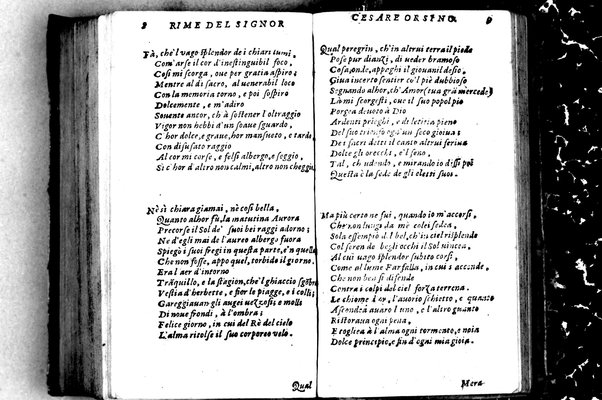 8 RIME DEL SIGNOR
Fà, che'l vago splendor de i chiari lumi,
Com'arse il cor d'inestinguibil foco,
Così mi scorga, oue per gratia aspiro;
Mentre al dì sacro, al venerabil loco
Con la memoria torno, e poi sospiro
Dolcemente, e m'adiro
Souente ancor, ch'à sostener l'oltraggio
Vigor non hebbi d'un soaue sguardo,
C'hor dolce, e graue, hor mansueto, e tardo,
Con disusato raggio
Al cor mi corse, e felsi albergo, e seggio,
Sì c'hor d'altro non calmi, altro non cheggio.
Nè sì chiara giamai, nè così bella,
Quanto alhor fù, la matutina Aurora
Precorse il Sol de' suoi bei raggi adorno;
Ne d'egli mai de l'aureo albergo fuora
Spiegò i suoi fregi in questa parte, e'n quella
Che non fosse, appo quel, torbido il giorno.
Era l'aer d'intorno
Tràquillo, e la stagion, che'l ghiaccio sgõbra
Vestia d'herbette, e fior le piagge, e i colli;
Gareggiauan gli augei vezzosi, e molli
Di noue frondi, à l'ombra;
Felice giorno, in cui del Rè del cielo
L'alma ritolse il suo corporeo velo.
Qual
CESARE ORSINO. 9
Qual peregrin, ch'in altrui terra il piede
Pose pur dianzi, di ueder bramoso
Cosa, onde, appeghi il giouanil desio,
Giua incerto sentier co'l piè dubbioso
Segnando alhor, ch'Amor (tua grã mercede)
Là mi scorgesti, oue il suo popol pio
Porgea deuoto à Dio
Ardenti prieghi, e di letitia pieno
Del suo ogn'un seco gioiua;
De' sacri detti il canto altrui feriua
Dolce gli orecchi, e'l seno,
Tal, ch'udendo, e mirando io dissi poi
Questa è la sede de gli eletti suoi.
Ma più certo ne fui, quando io m'accorsi,
Che non lungi da me colei sedea,
Sola essempio del bel, ch'in ciel risplende
Col seren de begli occhi il Sol vincea,
Al cui uago splendor subito corsi,
Come al lume Farfalla, in cui s'accende,
Che non ben si difende
Contra i colpi del ciel forza terrena.
Le chiome d'or, l'auorio schietto, e quanto
Ascondea auaro l'uno, e l'altro guanto
Ristoraua ogni pena,
E toglica à l'alma ogni tormento, e noia
Dolce principio, e fin d'ogni mia gioia.
Mera